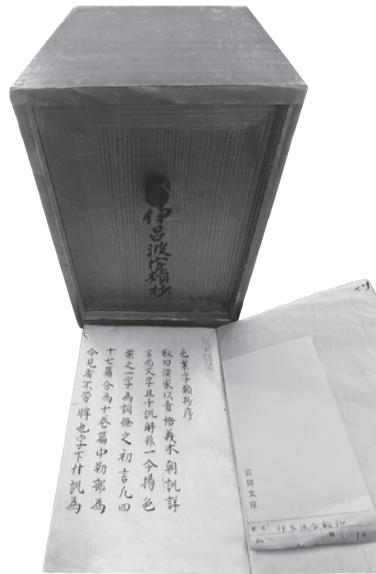 伊呂波字類抄
色葉字類抄序
叙曰漢家以音悟義本朝訓詳
言而文字且千訓解非一今揚色
葉之一字為詞條之初言凡四
十七篇分為十巻篇中勒部為
令見者不勞眸也字下付訓為
富岡文庫
伊呂波字類抄
10